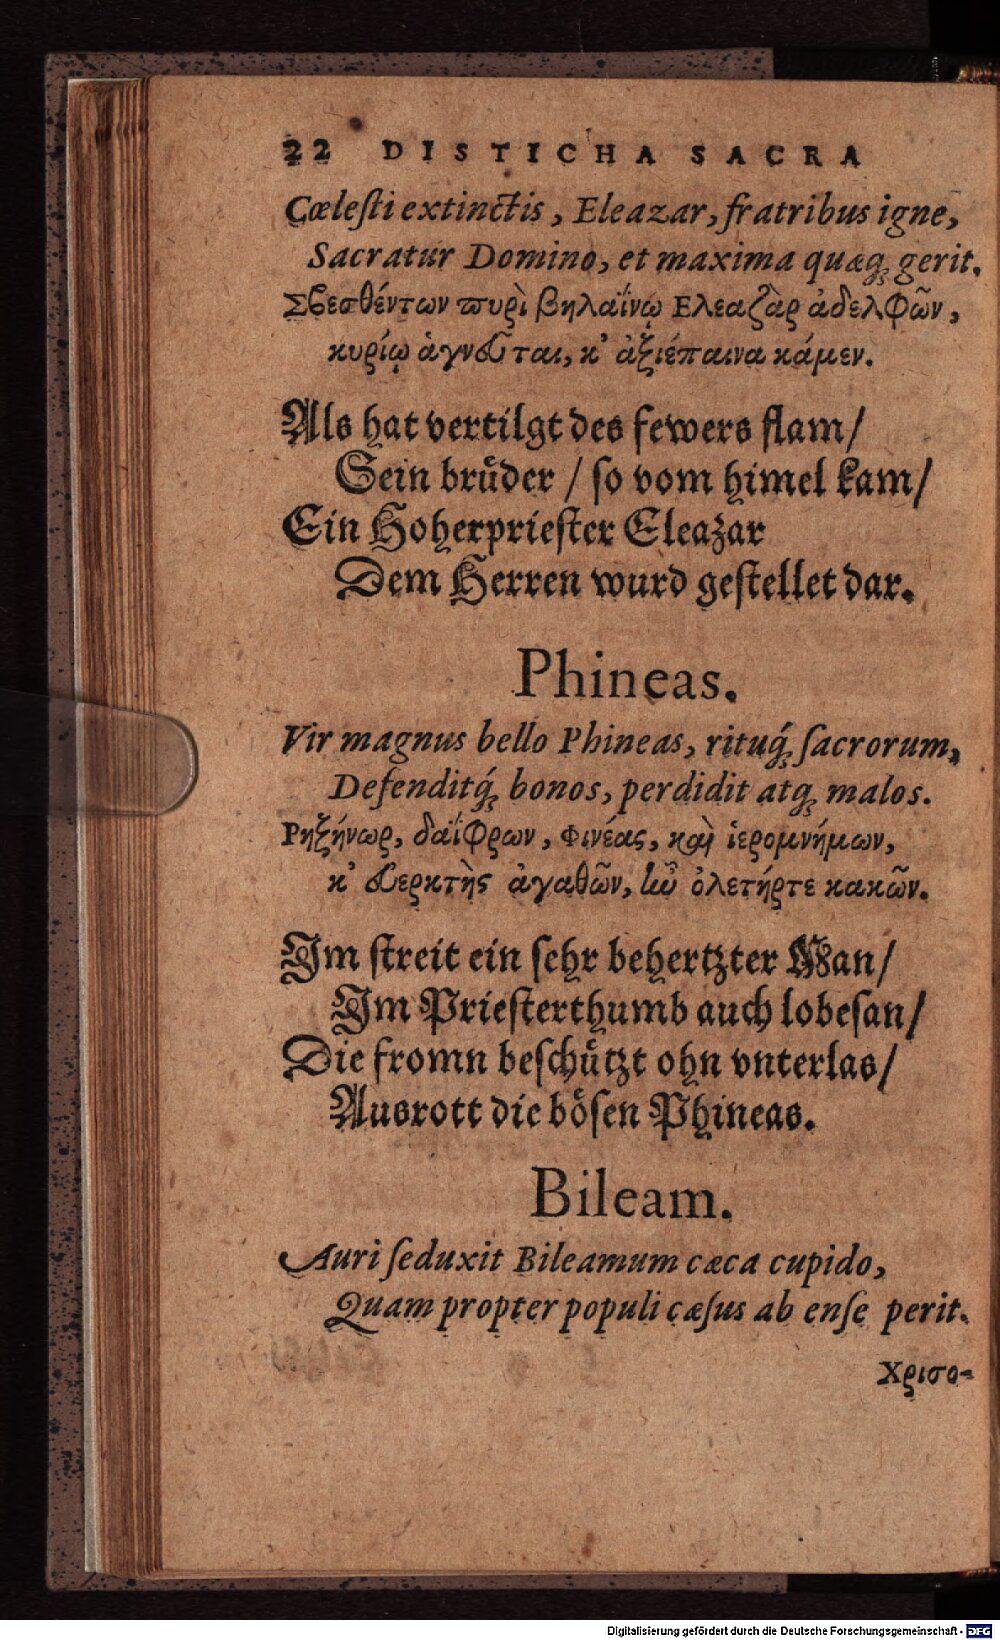 22 DISTICHA SACRA
Cœleſti extinctis, Eleazar, fratribus igne,
Sacratur Domino, et maxima quæq́; gerit.
Σβεσθέντων πυρὶ βηλαΐνῳ Ελεαζὰρ ἀδελφῶν,
κυρίῳ ἁγνεῦται, κ' ἀξιέπαινα κάμεν.
Als hat vertilgt des fewers flam/
Sein bruͤder / ſo vom himel kam/
Ein Hoherprieſter Eleazar
Dem Herren wurd geſtellet dar.
Phineas.
Vir magnus bello Phineas, rituq́; ſacrorum,
Defenditq́; bonos, perdidit atq; malos.
Ρηξήνωρ, δαΐφρων, Φινέας, καὶ ἱερομνήμων,
κ' εὑερκτὴς ἀγαθῶν, ὀλετήρτε κακῶν.
Im ſtreit ein ſehr behertzter Man/
Im Prieſterthumb auch lobeſan/
Die fromn beſchuͤtzt ohn vnterlas/
Ausrott die boͤſen Phineas.
Bileam.
Auri ſeduxit Bileamum cæca cupido,
Quam propter populi cæſus ab enſe perit.
Χρισο-
Digitalisierung gefördert durch die Deutsche Forschungsgemeinschaft - DFG